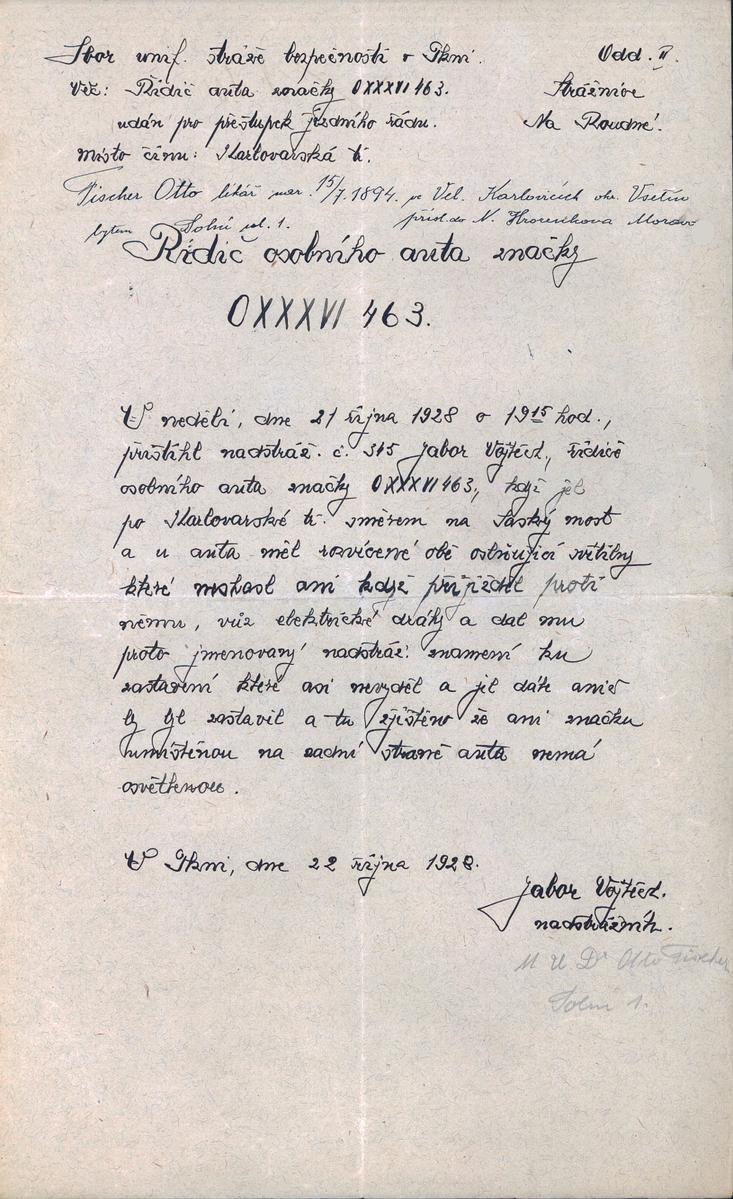 Sbor unif. stráže bezpečnosti v Plzni. Odd. II.
Věc: Řidič auta značky OXXXVI 463. Strážnice
udán pro přestupek jízdního řádu. Na Roudné.
místo činu: Karlovarská tř.
Fischer Otto lékář nar. 15/7. 1894. ve Vel. Karlovicích okr. Vsetín
bytem Solní ul. 1. přísl. do N. Hrozenkova Morava
Řidič osobního auta značky
OXXXVI 463.
V neděli, dne 21 října 1928 o 19 15 hod.,
přistihl nadstráž. č. 345 Jabor Vojtěch, řidiče
osobního auta značky OXXXVI 463, když jel
po Karlovarské tř. směrem na Saský most
a u auta měl rozvícené obě oslňující svítilny
které neshasl ani když přijížděl proti
němu, vůz elektrické dráhy a dal mu
proto jmenovaný nadstráž. znamení ku
zastavení které asi nevyděl a jel dále aniž
by byl zastavil a tu zjištěno že ani značku
umístěnou na zadní straně auta nemá
osvětlenou.
V Plzni, dne 22 října 1928.
Jabor Vojtěch.
nadstrážník.
M U Dr Otto Fischer
Solní 1.